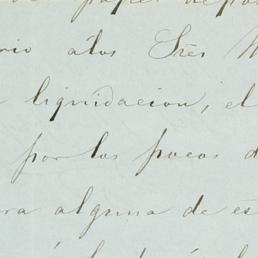 papel
rio a los Sres
liquidacion; el
por los pocos d
ra alguna de es